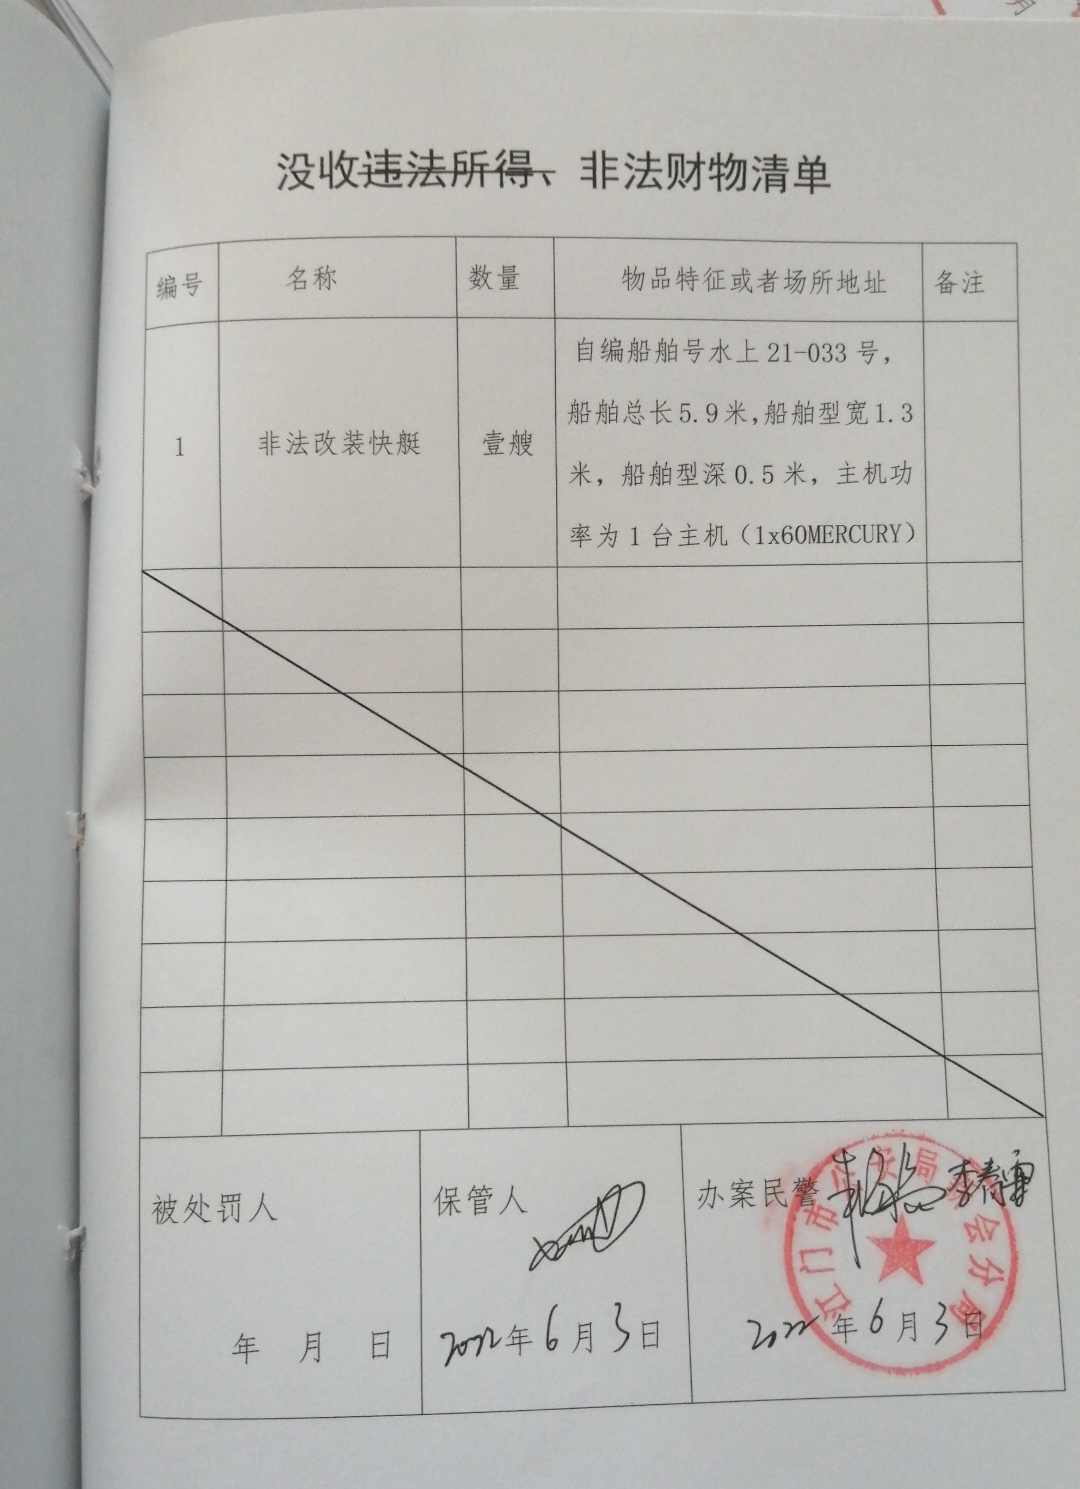 月
没收违法所得、非法财物清单
编号 名称 数量 物品特征或者场所地址 备注
1 非法改装快艇 壹艘
自编船舶号水上 21-033 号，
船舶总长 5.9 米，船舶型宽 1.3
米，船舶型深 0.5 米，主机功
率为 1 台主机（1x60MERCURY）
被处罚人 保管人 办案民警
江门市公安局新会分局
年 月 日 2022年6月3日 2022年6月3日